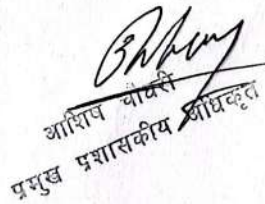 आशिष चौधरी
प्रमुख प्रशासकीय अधिकृत